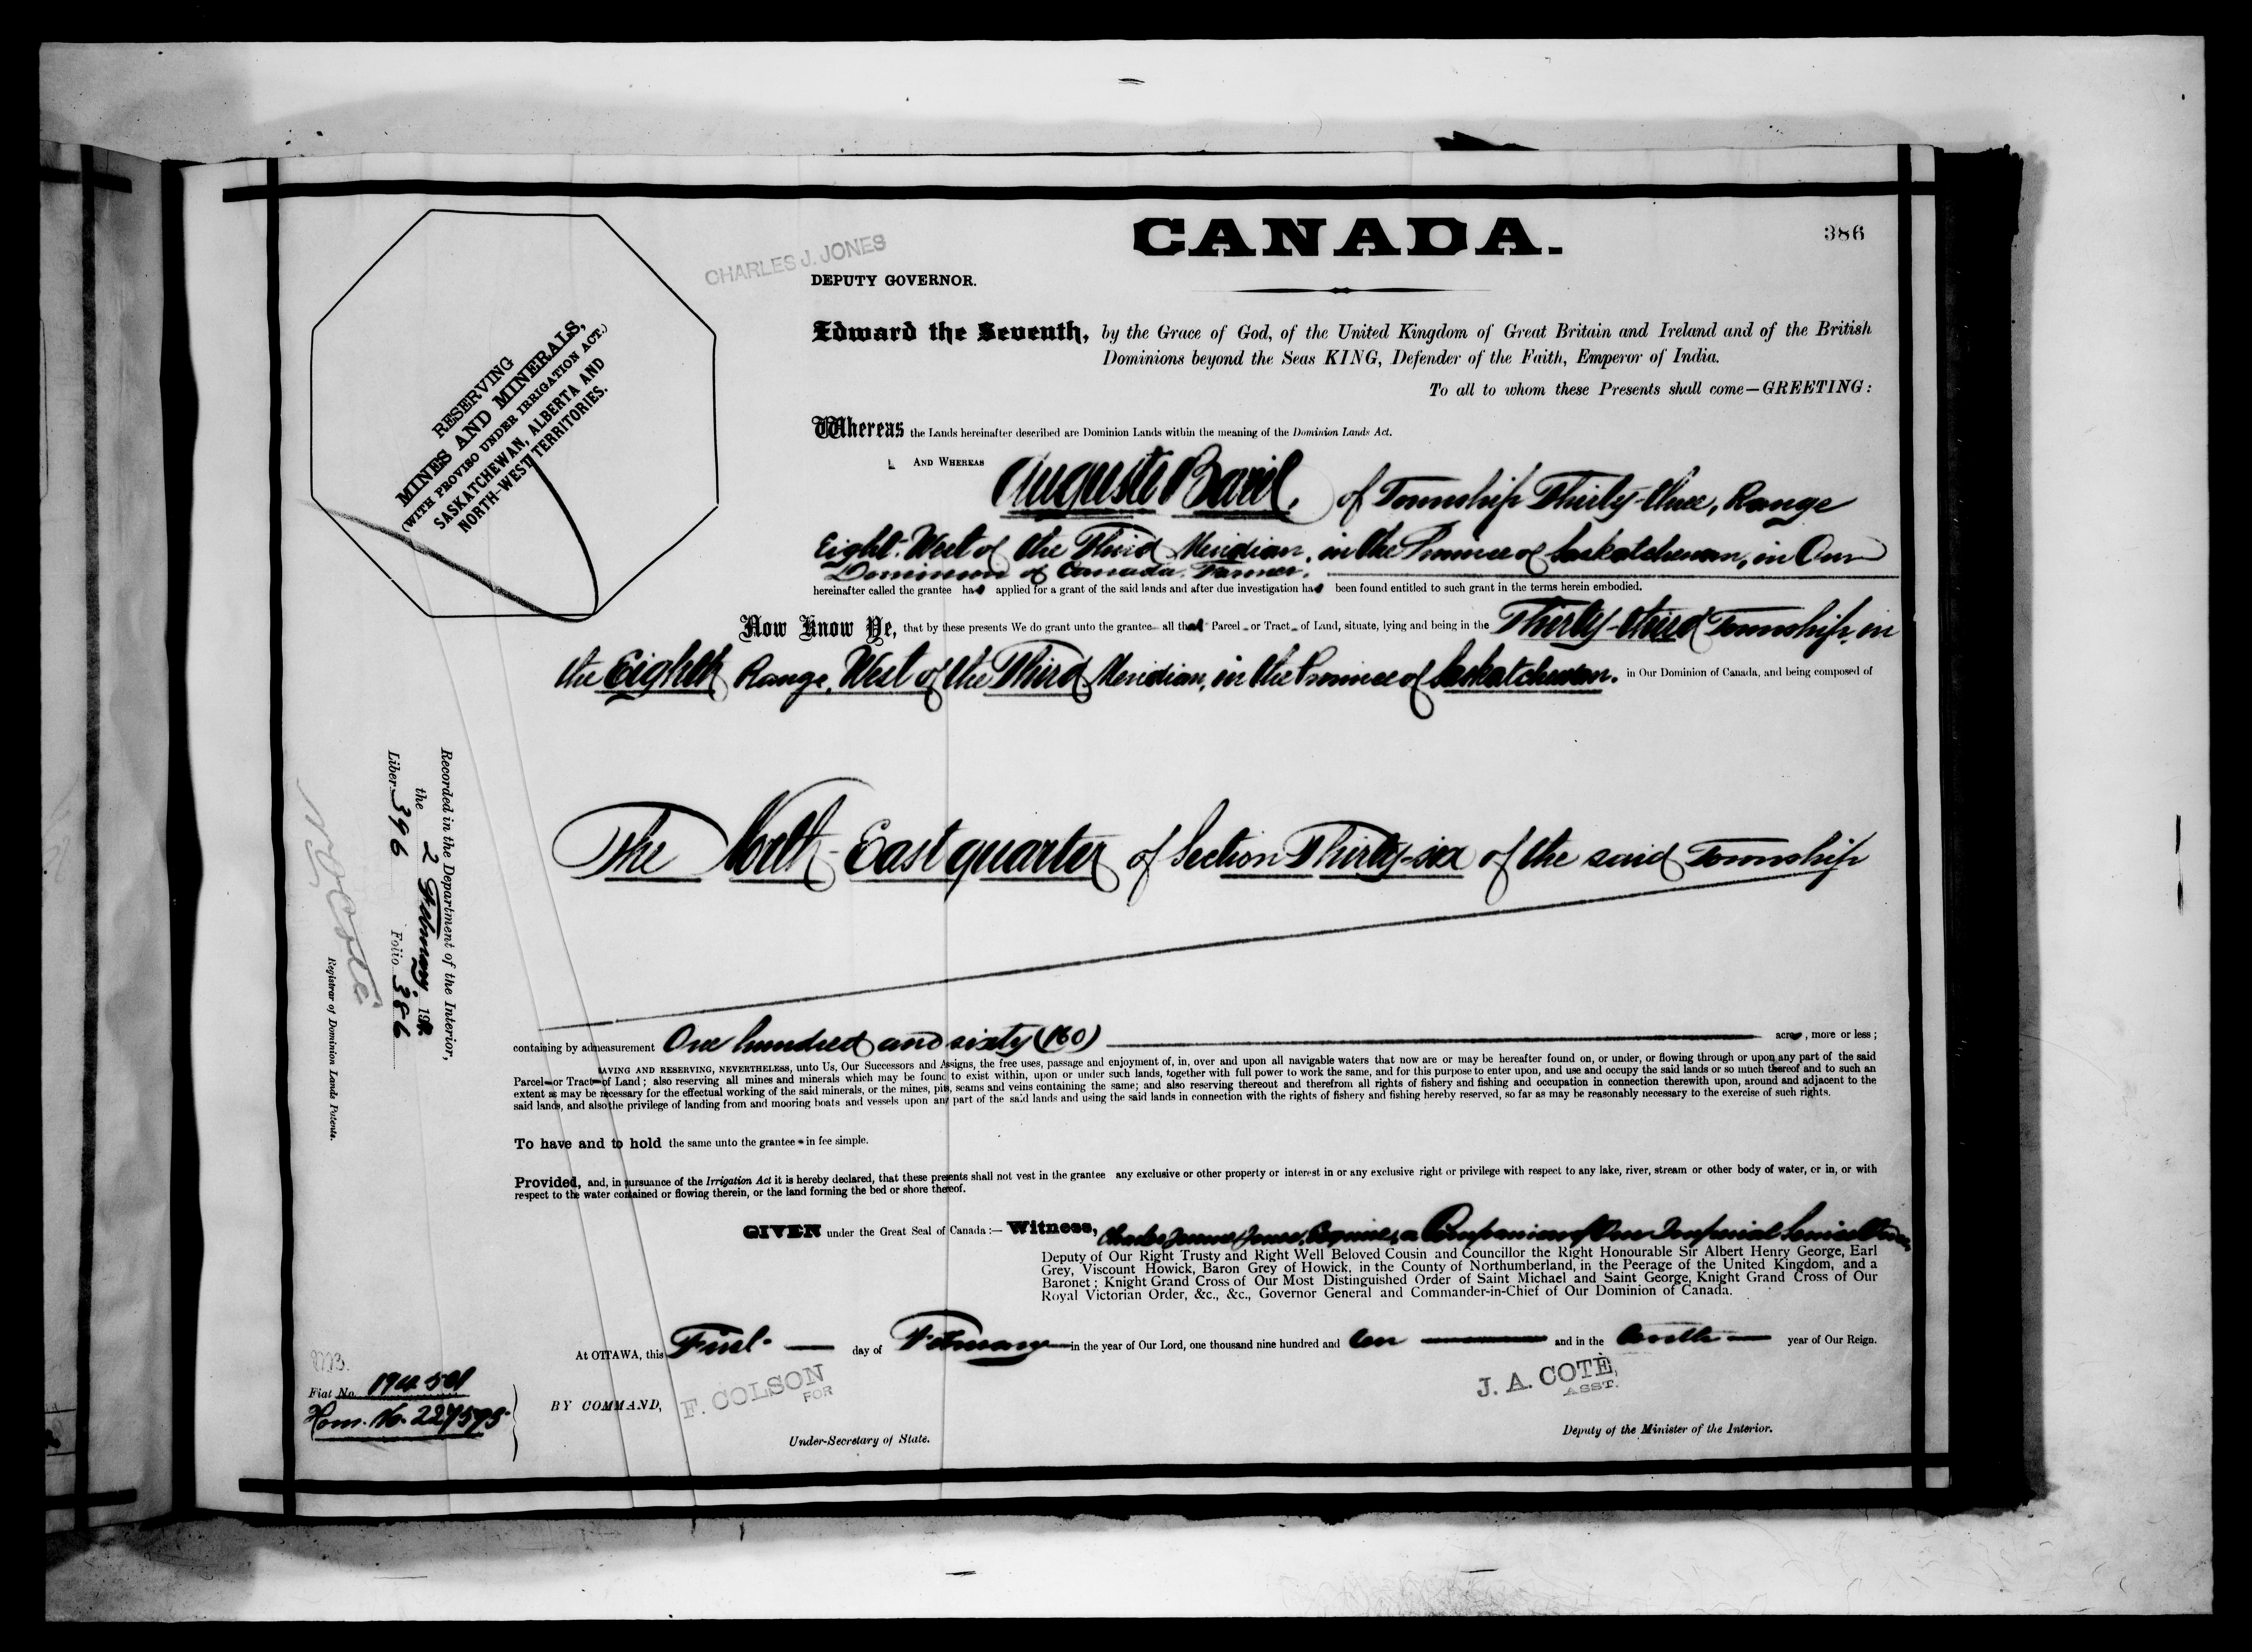 CANADA.
386
CHARLES J. JONES
DEPUTY GOVERNOR.
RESERVING
MINES AND MINERALS,
(WITH PROVISO UNDER IRRIGATION ACT.)
SASKATCHEWAN, ALBERTA AND
NORTH-WEST TERRITORIES.
Edward the Seventh, by the Grace of God, of the United Kingdom of Great Britain and Ireland and of the British
Dominions beyond the Seas KING, Defender of the Faith, Emperor of India.
To all to whom these Presents shall come—GREETING:
Whereas the Lands hereinafter described are Dominion Lands within the meaning of the Dominion Lands Act.
AND WHEREAS Auguste Baril, of Township Thirty-three, Range
Eight, West of the Third Meridian, in the Province of Saskatchewan, in Our
Dominion of Canada, Farmer,
hereinafter called the grantee has applied for a grant of the said lands and after due investigation has been found entitled to such grant in the terms herein embodied.
Now Know Ye, that by these presents We do grant unto the grantee all that Parcel or Tract of Land, situate, lying and being in the Thirty-third Township, in
the Eighth Range, West of the Third Meridian, in the Province of Saskatchewan, in Our Dominion of Canada, and being composed of
The North-East quarter of Section Thirty-six of the said Township
containing by admeasurement One hundred and sixty (160) acres, more or less;
SAVING AND RESERVING, NEVERTHELESS, unto Us, Our Successors and Assigns, the free uses, passage and enjoyment of, in, over and upon all navigable waters that now are or may be hereafter found on, or under, or flowing through or upon any part of the said
Parcel or Tract of Land; also reserving all mines and minerals which may be found to exist within, upon or under such lands, together with full power to work the same, and for this purpose to enter upon, and use and occupy the said lands or so much thereof and to such an
extent as may be necessary for the effectual working of the said minerals, or the mines, pits, seams and veins containing the same; and also reserving thereout and therefrom all rights of fishery and fishing and occupation in connection therewith upon, around and adjacent to the
said lands, and also the privilege of landing from and mooring boats and vessels upon any part of the said lands and using the said lands in connection with the rights of fishery and fishing hereby reserved, so far as may be reasonably necessary to the exercise of such rights.
To have and to hold the same unto the grantee in fee simple.
Provided, and, in pursuance of the Irrigation Act it is hereby declared, that these presents shall not vest in the grantee any exclusive or other property or interest in or any exclusive right or privilege with respect to any lake, river, stream or other body of water, or in, or with
respect to the water contained or flowing therein, or the land forming the bed or shore thereof.
GIVEN under the Great Seal of Canada:— Witness, Charles James Jones, Esquire, a Companion of Our Imperial Service Order,
Deputy of Our Right Trusty and Right Well Beloved Cousin and Councillor the Right Honourable Sir Albert Henry George, Earl
Grey, Viscount Howick, Baron Grey of Howick, in the County of Northumberland, in the Peerage of the United Kingdom, and a
Baronet; Knight Grand Cross of Our Most Distinguished Order of Saint Michael and Saint George, Knight Grand Cross of Our
Royal Victorian Order, &c., &c., Governor General and Commander-in-Chief of Our Dominion of Canada.
At OTTAWA, this First day of February in the year of Our Lord, one thousand nine hundred and ten and in the tenth year of Our Reign.
BY COMMAND,
F. COLSON
FOR
Under-Secretary of State.
J. A. COTÈ,
ASST.
Deputy of the Minister of the Interior.
Fiat No. 194501
Hom. No. 227595
Recorded in the Department of the Interior,
the 2 February 19
Liber 396 Folio 386
N O Coté
Registrar of Dominion Lands Patents.